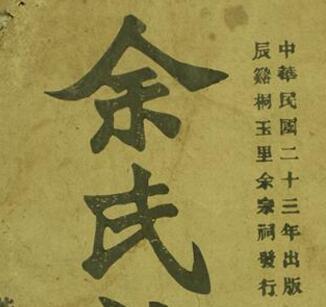 中華民國二十三年出版
辰谿桐玉里余宗祠發行
余氏